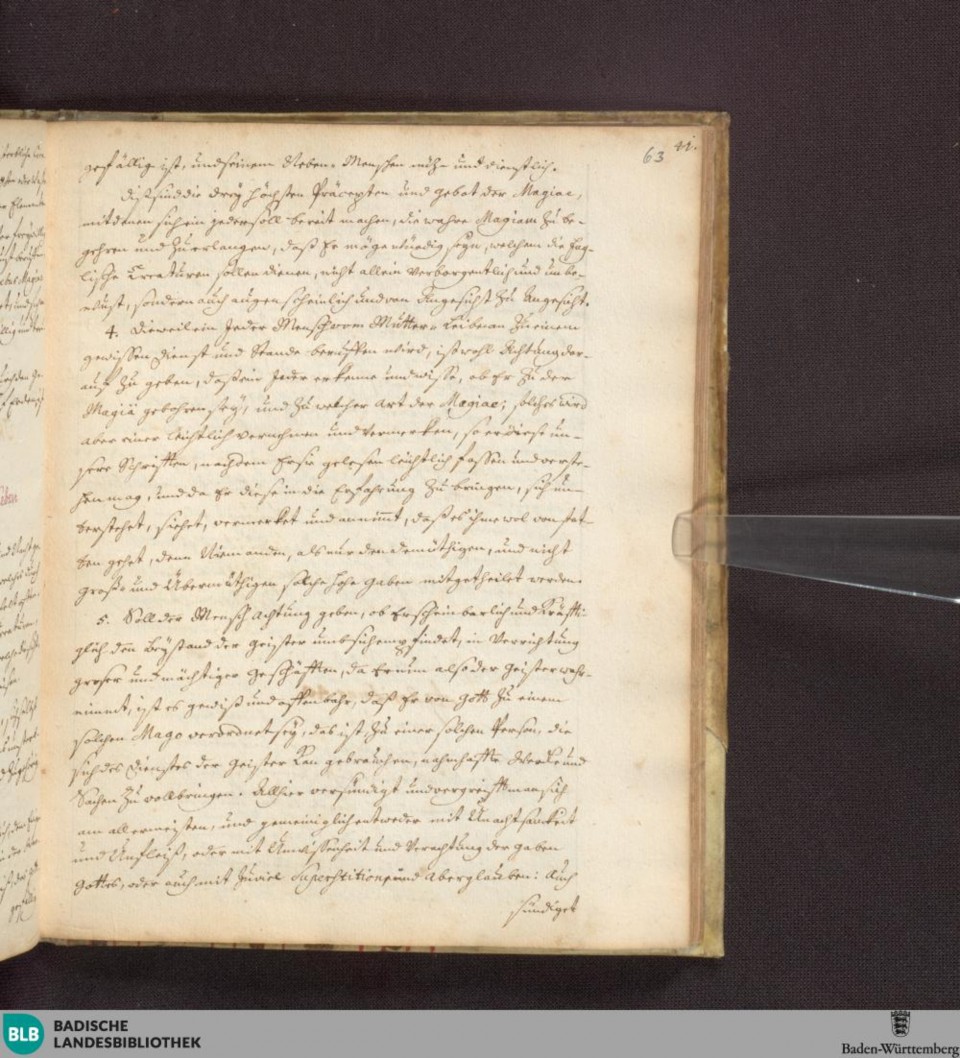 63 42.
gefällig ist, und seinem Neben-Menschen nütz- und dienstlich.
Diß sind die drey höchsten Präcepten und Gebot der Magiae,
mit denen sich ein jeder soll bereit machen, die wahre Magiam zu be-
gehren und zu erlangen, daß Er möge würdig seyn, welchem die Eng-
lische Creaturen sollen dienen, nicht allein verborgentlich und unbe-
wust, sondern auch augenscheinlich und von Angesicht zu Angesicht.
4. Dieweil ein Jeder Mensch vom Mutter-Leibe an zu einem
gewissen Dienst und Stande beruffen wird, ist wohl Achtung dar-
auf zu geben, daß ein Jeder erkenne und wisse, ob Er zu der
Magiä gebohren sey, und zu welcher Art der Magiae; solches wird
aber einer leichtlich vernehmen und vermerken, so er diese un-
sere Schrifften, nachdem Er sie gelesen leichtlich fassen und verste-
hen mag, und da Er diese in die Erfahrung zu bringen, sich un-
terstehet, siehet, vermerket und annimmt, daß es ihme wol von stat-
ten gehet, denn Niemanden, als nur den demüthigen, und nicht
groß- und Übermüthigen solche hohe Gaben mitgetheilet werden.
5. Soll der Mensch Achtung geben, ob Er scheinbarlich und kräffti-
glich den Beystand der Geister umb sich empfindet, in Verrichtung
groser und mächtiger Geschäfften, da Er nun also der Geister wahr-
nimmt, ist es gewiß und offenbahr, daß Er von Gott zu einem
solchen Mago verordnet sey, das ist zu einer solchen Person, die
sich des Dienstes der Geister kan gebrauchen, nahmhaffte Werke und
Sachen zu vollbringen. Allhier versündigt und vergreifft man sich
am allermeisten, und gemeiniglich entweder mit Unachtsamkeit
und Unfleiß, oder mit Unwissenheit und Verachtung der Gaben
Gottes, oder auch mit zuviel Superstition und Aberglauben: Auch
sündiget
BLB BADISCHE
LANDESBIBLIOTHEK
Baden-Württemberg